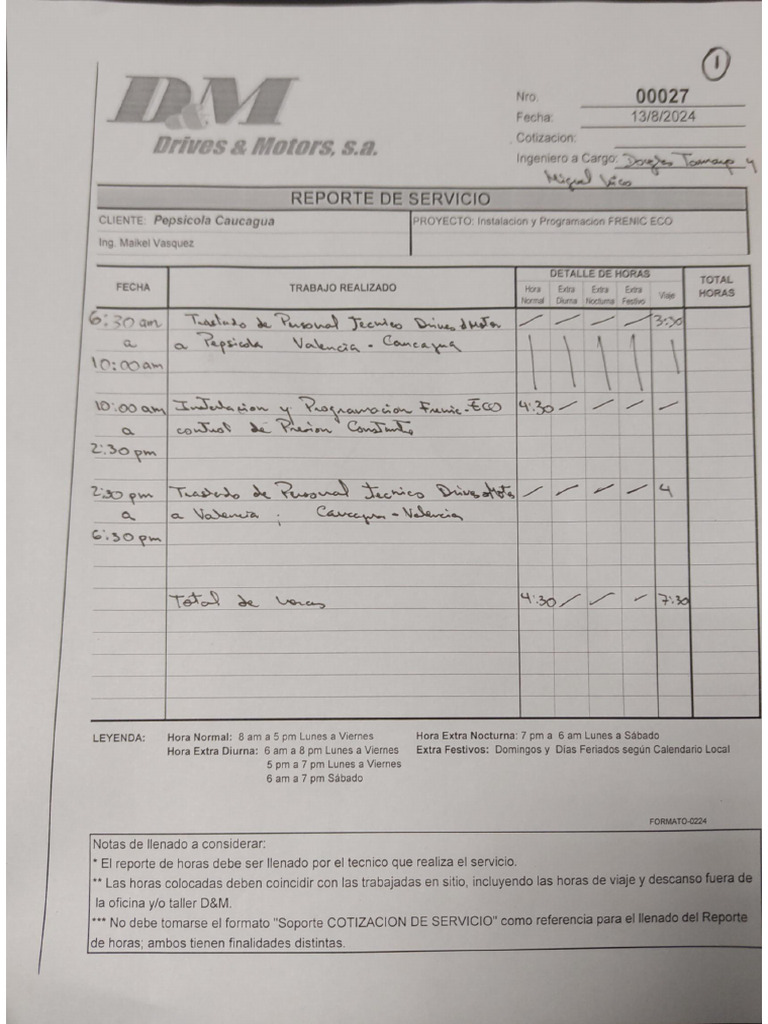 1
D&M
Drives & Motors, s.a.
Nro. 00027
Fecha: 13/8/2024
Cotizacion:
Ingeniero a Cargo: Douglas Tamayo y
Miguel
REPORTE DE SERVICIO
CLIENTE: Pepsicola Caucagua
PROYECTO: Instalacion y Programacion FRENIC ECO
Ing. Maikel Vasquez
FECHA TRABAJO REALIZADO DETALLE DE HORAS TOTAL HORAS
Hora Normal Extra Diurna Extra Nocturna Extra Festivo Viaje
6:30 am Traslado de Personal Tecnico Drives & Motor — — — — 3:30
a a Pepsicola Valencia - Caucagua
10:00 am
10:00 am Instalacion y Programacion Frenic-ECO 4:30 — — — —
a control de Presion Constante
2:30 pm
2:30 pm Traslado de Personal Tecnico Drives & Motor — — — — 4
a a Valencia ; Caucagua - Valencia
6:30 pm
Total de horas 4:30 — — — 7:30
LEYENDA: Hora Normal: 8 am a 5 pm Lunes a Viernes Hora Extra Nocturna: 7 pm a 6 am Lunes a Sábado
Hora Extra Diurna: 6 am a 8 pm Lunes a Viernes Extra Festivos: Domingos y Días Feriados según Calendario Local
5 pm a 7 pm Lunes a Viernes
6 am a 7 pm Sábado
FORMATO-0224
Notas de llenado a considerar:
* El reporte de horas debe ser llenado por el tecnico que realiza el servicio.
** Las horas colocadas deben coincidir con las trabajadas en sitio, incluyendo las horas de viaje y descanso fuera de
la oficina y/o taller D&M.
*** No debe tomarse el formato "Soporte COTIZACION DE SERVICIO" como referencia para el llenado del Reporte
de horas; ambos tienen finalidades distintas.